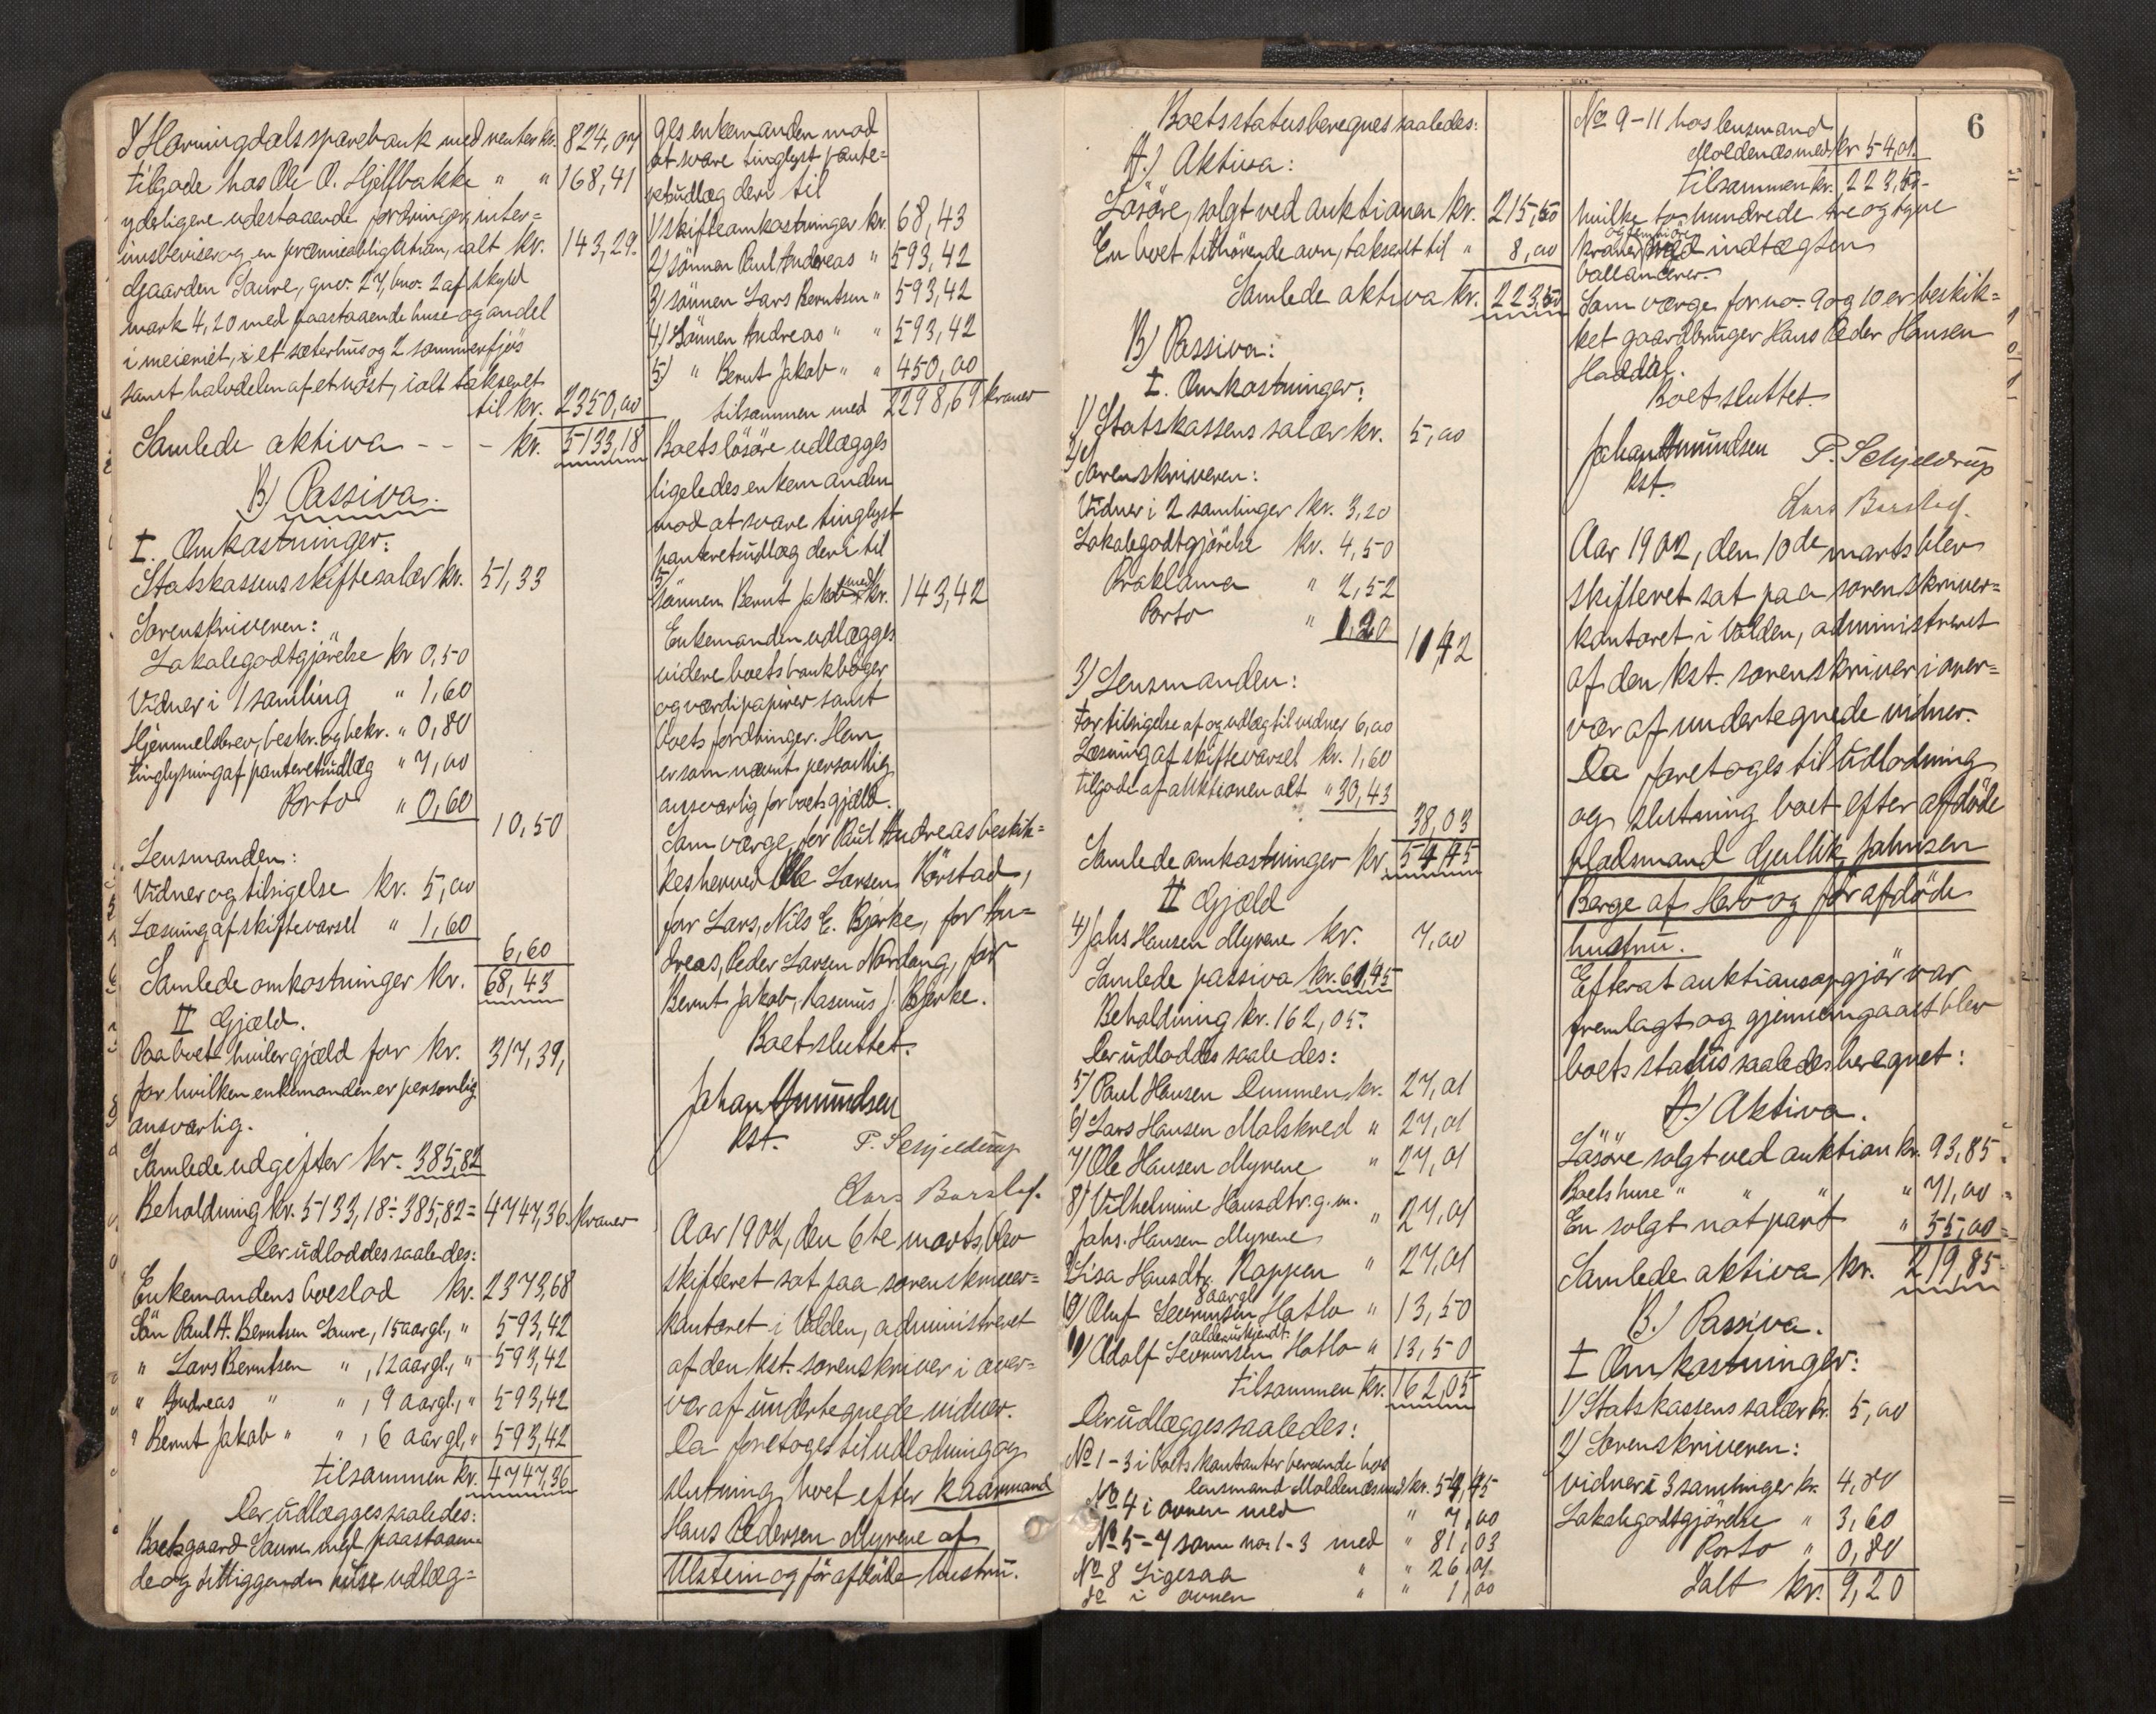 I Horningdals sparebank med renter kr. 824,07
tilgode hos Ole O. Hjellbakke " " 168,41
yderligere udestaaende fordringer, inter=
imsbeviser og en præmieobligation, ialt kr. 143,29.
Gaarden Saure, gno. 27, bno. 2 af skyld
mark 4,20 med paastaaende huse og andel
i meieriet, i et sæterhus og 2 sommerfjøs
samt halvdelen af et nøst, ialt takseret
til kr. 2350,00
Samlede aktiva - - - kr. 5133,18
B) Passiva.
I. Omkostninger:
Statskassens skiftesalær kr. 51,33
Sorenskriveren:
Lokalegodtgjørelse kr 0,50
Vidner i 1 samling " 1,60
Hjemmelsbrev, beskr. og bekr. " 0,80
tinglysning af panteretsudlæg " 7,00
Porto " 0,60
10,50
Lensmanden:
Vidner og tilsigelse kr. 5,00
Læsning af skiftevarsel " 1,60
6,60
Samlede omkostninger kr. 68,43
II Gjæld.
Paa boet hviler gjæld for kr. 317,39,
for hvilken enkemanden er personlig
ansvarlig.
Samlede udgifter kr. 385,82
Beholdning kr. 5133,18 ÷ 385,82 = 4747,36 kroner
Der udloddes saaledes:
Enkemandens boeslod kr. 2373,68
Søn Paul A. Berntsen Saure, 15 aar gl., " 593,42
" Lars Berntsen " , 12 aar gl., " 593,42
" Andreas " " , 9 aar gl., " 593,42
" Bernt Jakob " " , 6 aar gl., " 593,42
tilsammen kr. 4747,36
Der udlægges saaledes:
Boets gaard Saure med paastaaen=
de og tilliggende huse udlæg=
ges enkemanden mod
at svare tinglyst pante=
retsudlæg deri til
1) skifteomkostninger kr. 68,43
2) sønnen Paul Andreas " 593,42
3) sønnen Lars Berntsen " 593,42
4) Sønnen Andreas " " 593,42
5) " Bernt Jakob " " 450,00
tilsammen med 2298,69 kroner
Boets løsøre udlægges
ligeledes enkemanden
mod at svare tinglyst
panteretsudlæg deri til
5) sønnen Bernt Jakob med kr. 143,42
Enkemanden udlægges
videre boets bankbøger
og værdipapirer samt
boets fordringer. Han
er som nævnt personlig
ansvarlig for boets gjæld.
Som værge for Paul Andreas beskik=
kes herved Ole Larsen Hörstad,
for Lars, Nils E. Bjerke, for An=
dreas, Peder Larsen Nordang, for
Bernt Jakob, Rasmus J. Bjerke.
Boet sluttet.
Johan Amundsen
kst. P. Schjeldrup
Lars Barstad.
Aar 1902, den 6te marts, blev
skifteret sat paa sorenskriver=
kontoret i Volden, administreret
af den kst. sorenskriver i over=
vær af undertegnede vidner.
Da foretoges til udlodning og
slutning boet efter kaarmand
Hans Pedersen Myrene af
Ulstein og før afdøde hustru.
Boets status beregnes saaledes:
A.) Aktiva:
Løsøre, solgt ved auktionen kr. 215,50
En boet tilhørende ovn, takseret til " 8,00
Samlede aktiva kr. 223,50
B) Passiva:
I. Omkostninger:
1) Statskassens salær kr. 5,00
2) Sorenskriveren:
Vidner i 2 samlinger kr. 3,20
Lokalegodtgjørelse kr. 4,50
Proklama " 2,52
Porto " 1,20
11,42
3) Lensmanden:
For tilsigelse af og udlæg til vidner 6,00
Læsning af skiftevarsel kr. 1,60
tilgode af auktionen alt " 30,43
38,03
Samlede omkostninger kr. 54,45
II Gjæld
4) Johs Hansen Myrene kr. 7,00
Samlede passiva kr. 61,45
Beholdning kr. 162,05.
Der udloddes saaledes:
5) Paul Hansen Dimmen kr. 27,01
6) Lars Hansen Molskred " 27,01
7) Ole Hansen Myrene " 27,01
8) Vilhelmine Hansdtr. g. m.
Johs. Hansen Myrene " 27,01
9) Lisa Hansdtr. Roppen " 27,01
8 aar gl
10) Oluf Severinsen Hatlo " 13,50
alder ukjendt.
11) Adolf Severinsen Hatlo " 13,50
tilsammen kr. 162,05
Der udlægges saaledes:
No 1-3 i boets kontanter beroende hos
lensmand Moldenæs med kr. 54,45
No 4 i ovnen med " 7,00
No 5-7 som no. 1-3 med " 81,03
No 8 Ligesaa " " 26,01
do i ovnen " " 1,00
6
No 9-11 hos lensmand
Moldenæs med kr 54,01.
tilsammen kr. 223,50-
hvilke to hundrede tre og tyve
og femti øre
kroner med indtægten
ballanserer.
Som værge for no. 9 og 10 er beskik=
ket gaardbruger Hans Peder Hansen
Haddal.
Boet sluttet.
Johan Amundsen P. Schjeldrup
kst.
Lars Barstad.
Aar 1902, den 10de marts blev
skifteret sat paa sorenskriver=
kontoret i Volden, administreret
af den kst. sorenskriver i over=
vær af undertegnede vidner.
Da foretoges til udlodning
og slutning boet efter afdøde
pladsmand Gullik Johnsen
Berge af Herö og før afdøde
hustru.
Efterat auktionsopgjør var
fremlagt og gjennemgaaet blev
boets status saaledes beregnet:
A.) Aktiva.
Løsøre solgt ved auktion kr. 93,85
Boets huse " " " " 71,00
En solgt notpart " 55,00
Samlede aktiva kr. 219,85
B.) Passiva.
I Omkostninger:
1) Statskassens salær kr. 5,00
2) Sorenskriveren:
vidner i 3 samlinger kr. 4,80
Lokalegodtgjørelse " 3,60
Porto " 0,80
Ialt kr. 9,20